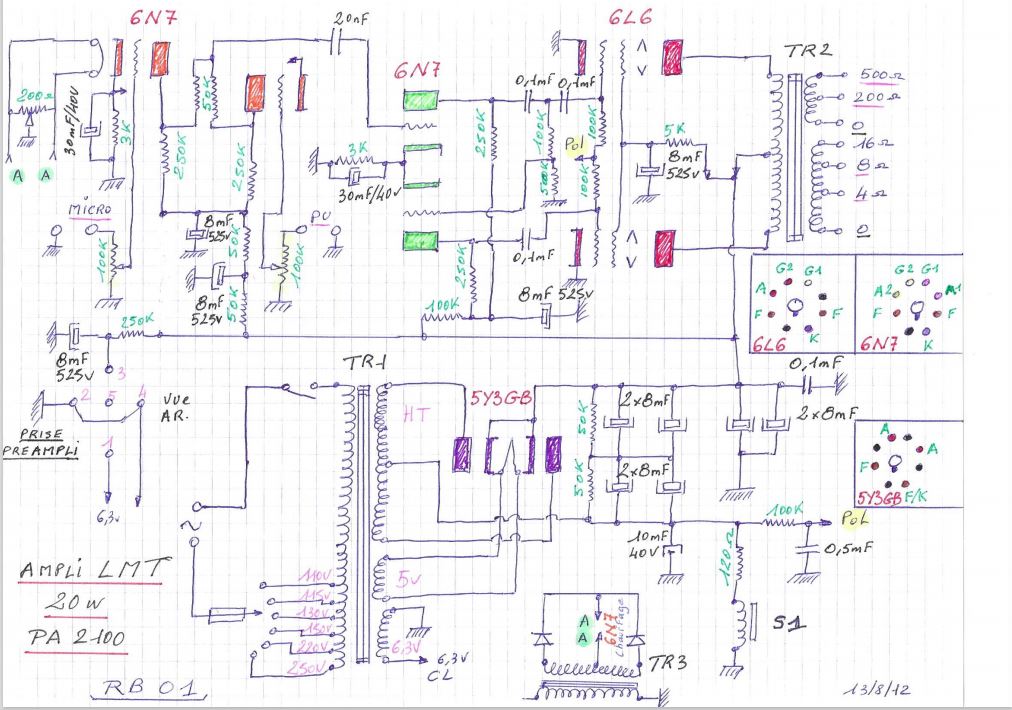 6N7
20nF
6L6
TR2
6N7
500Ω
200Ω
0
16Ω
8Ω
4Ω
0
200Ω
30mF/40V
3K
250K
50K
250K
0,1mF
0,1mF
250K
100K
100K
Pol
5K
8mF
525V
3K
30mF/40V
500K
100K
A A
MICRO
100K
8mF
525V
50K
PU
100K
0,1mF
250K
8mF
525V
50K
100K
8mF 525V
G2 G1
A
F F
K
6L6
G2 G1
A2 A1
F F
K
6N7
250K
8mF
525V
3
2 5 4
VUE
AR.
PRISE
PREAMPLI
1
6,3V
TR1
HT
5Y3GB
50K
2x8mF
0,1mF
2x8mF
50K
2x8mF
A
A
F
5Y3GB F/K
~
10mF
40V
100K
PoL
120Ω
0,5mF
AMPLI LMT
20W
PA 2100
110V
115V
130V
150V
220V
250V
5V
6,3V
6,3V
CL
A
A A
6N7
Chauffage
TR3
S1
RB 01
13/8/12